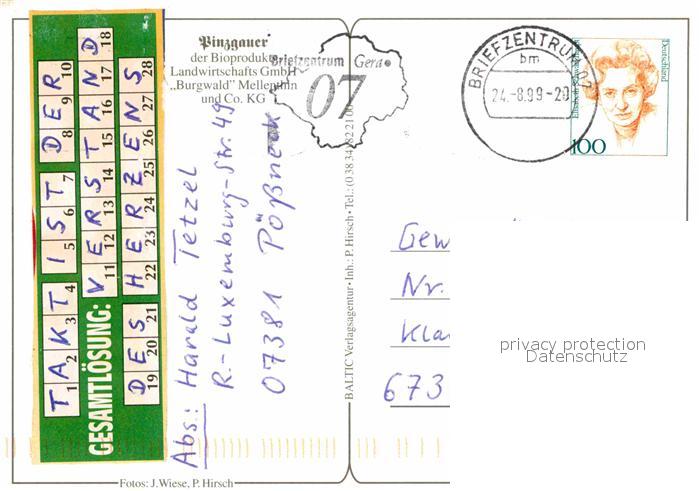 TAKT IST DER
1 2 3 4 5 6 7 8 9 10
VERSTAND
11 12 13 14 15 16 17 18
DES HERZENS
19 20 21 22 23 24 25 26 27 28
GESAMTLÖSUNG:
Pinzgauer
der Bioprodukte
Landwirtschafts GmbH
„Burgwald" Mellenthin
und Co. KG
Briefzentrum Gera
07
BRIEFZENTRUM 07
bm
24.-8.99-20
Deutschland
100
Abs.: Harald Tetzel
R.-Luxemburg-Str. 49
07381 Pößneck
BALTIC Verlagsagentur • Inh.: P. Hirsch • Tel.:
Gew
Nr.
Kla
673
privacy protection
Datenschutz
Fotos: J. Wiese, P. Hirsch